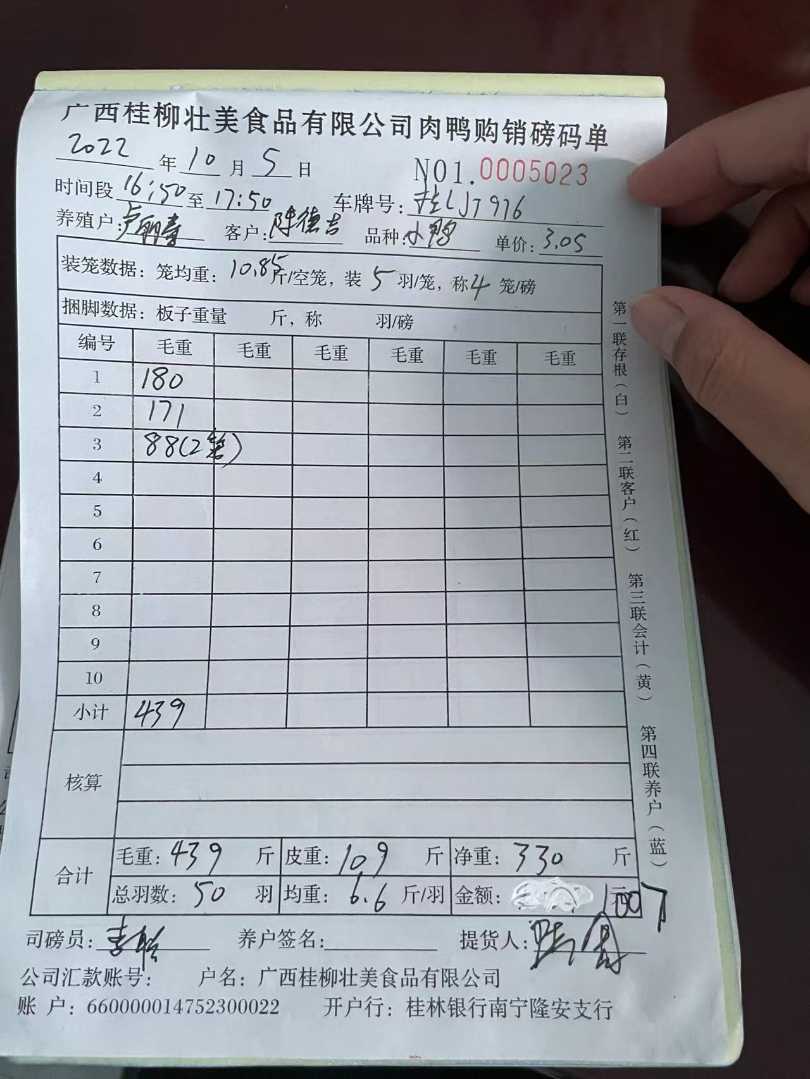 广西桂柳壮美食品有限公司肉鸭购销磅码单
2022 年 10 月 5 日 NO1.0005023
时间段 16:50 至 17:50 车牌号: 桂LJ7916
养殖户: 客户: 陈德吉 品种: 小鸭 单价: 3.05
装笼数据: 笼均重: 10.85斤/空笼, 装 5 羽/笼, 称 4 笼/磅
捆脚数据: 板子重量 斤, 称 羽/磅
编号 毛重 毛重 毛重 毛重 毛重 毛重
1 180
2 171
3 88(2笼)
4
5
6
7
8
9
10
小计 439
核算
合计 毛重: 439 斤 皮重: 109 斤 净重: 330 斤
总羽数: 50 羽 均重: 6.6 斤/羽 金额: 1007 元
司磅员: 养户签名: 提货人:
公司汇款账号: 户名: 广西桂柳壮美食品有限公司
账 户: 660000014752300022 开户行: 桂林银行南宁隆安支行
第一联存根(白) 第二联客户(红) 第三联会计(黄) 第四联养户(蓝)